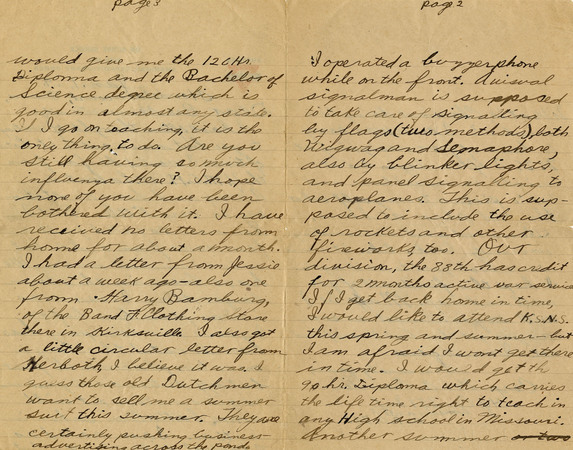 page 2
I operated a buzzerphone
while on the front. A visual
signalman is supposed
to take care of signalling
by flags (two methods), both
Wigwag and Semaphore,
also by blinker lights,
and panel signalling to
aeroplanes. This is sup-
posed to include the use
of rockets and other
fireworks, too. Our
division, the 88th has credit
for 2 months active war service
If I get back home in time,
I would like to attend K.S.N.S.
this spring and summer - but
I am afraid I wont get there
in time. I would get the
90 hr. Diploma which carries
the life time right to teach in
any High school in Missouri.
Another summer or two
page 3
would give me the 120 Hr.
Diploma and the Bachelor of
Science degree which is
good in almost any state.
If I go on teaching, it is the
only thing, to do. Are you
still having so much
influenza there? I hope
none of you have been
bothered with it. I have
received no letters from
home for about a month.
I had a letter from Jessie
about a week ago - also one
from Harry Bamburg,
of the Band F Clothing Store
there in Kirksville. I also got
a little circular letter from
Herboth, I believe it was. I
guess those old Dutchmen
want to sell me a summer
suit this summer. They are
certainly pushing business
advertising across the ponds